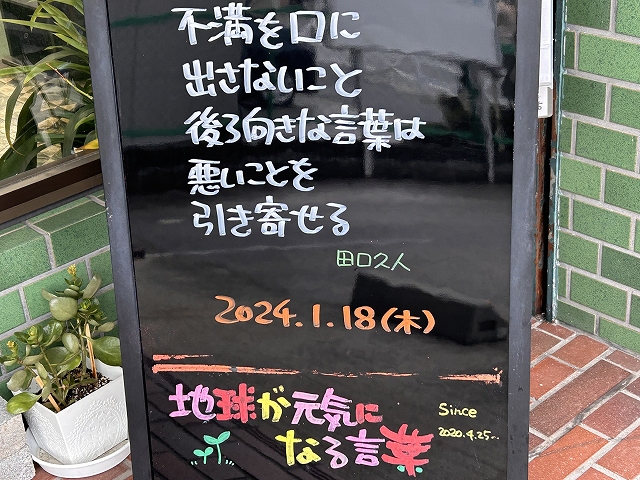 不満を口に
出さないこと
後ろ向きな言葉は
悪いことを
引き寄せる
田口久人
2024.1.18(木)
地球が元気に
なる言葉
Since
2020.4.25~